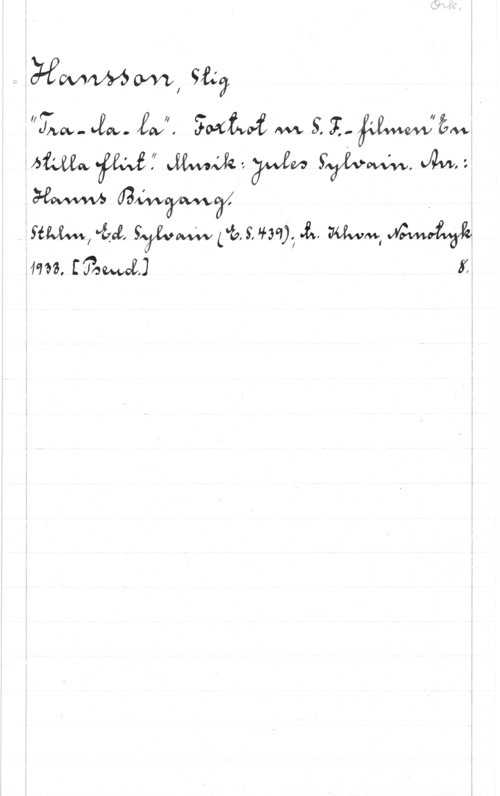 Ork.
Hansson, Stig
"Tra-la-la". Foxtrot ur S.F.-filmen "En
stilla flirt". Musik: Jules Sylvain. Arr.:
Hanns Bingang.
Sthlm, Ed. Sylvain (E.S.439); tr. Khvn, Nornotryk
1933. [Pseud.] 8.